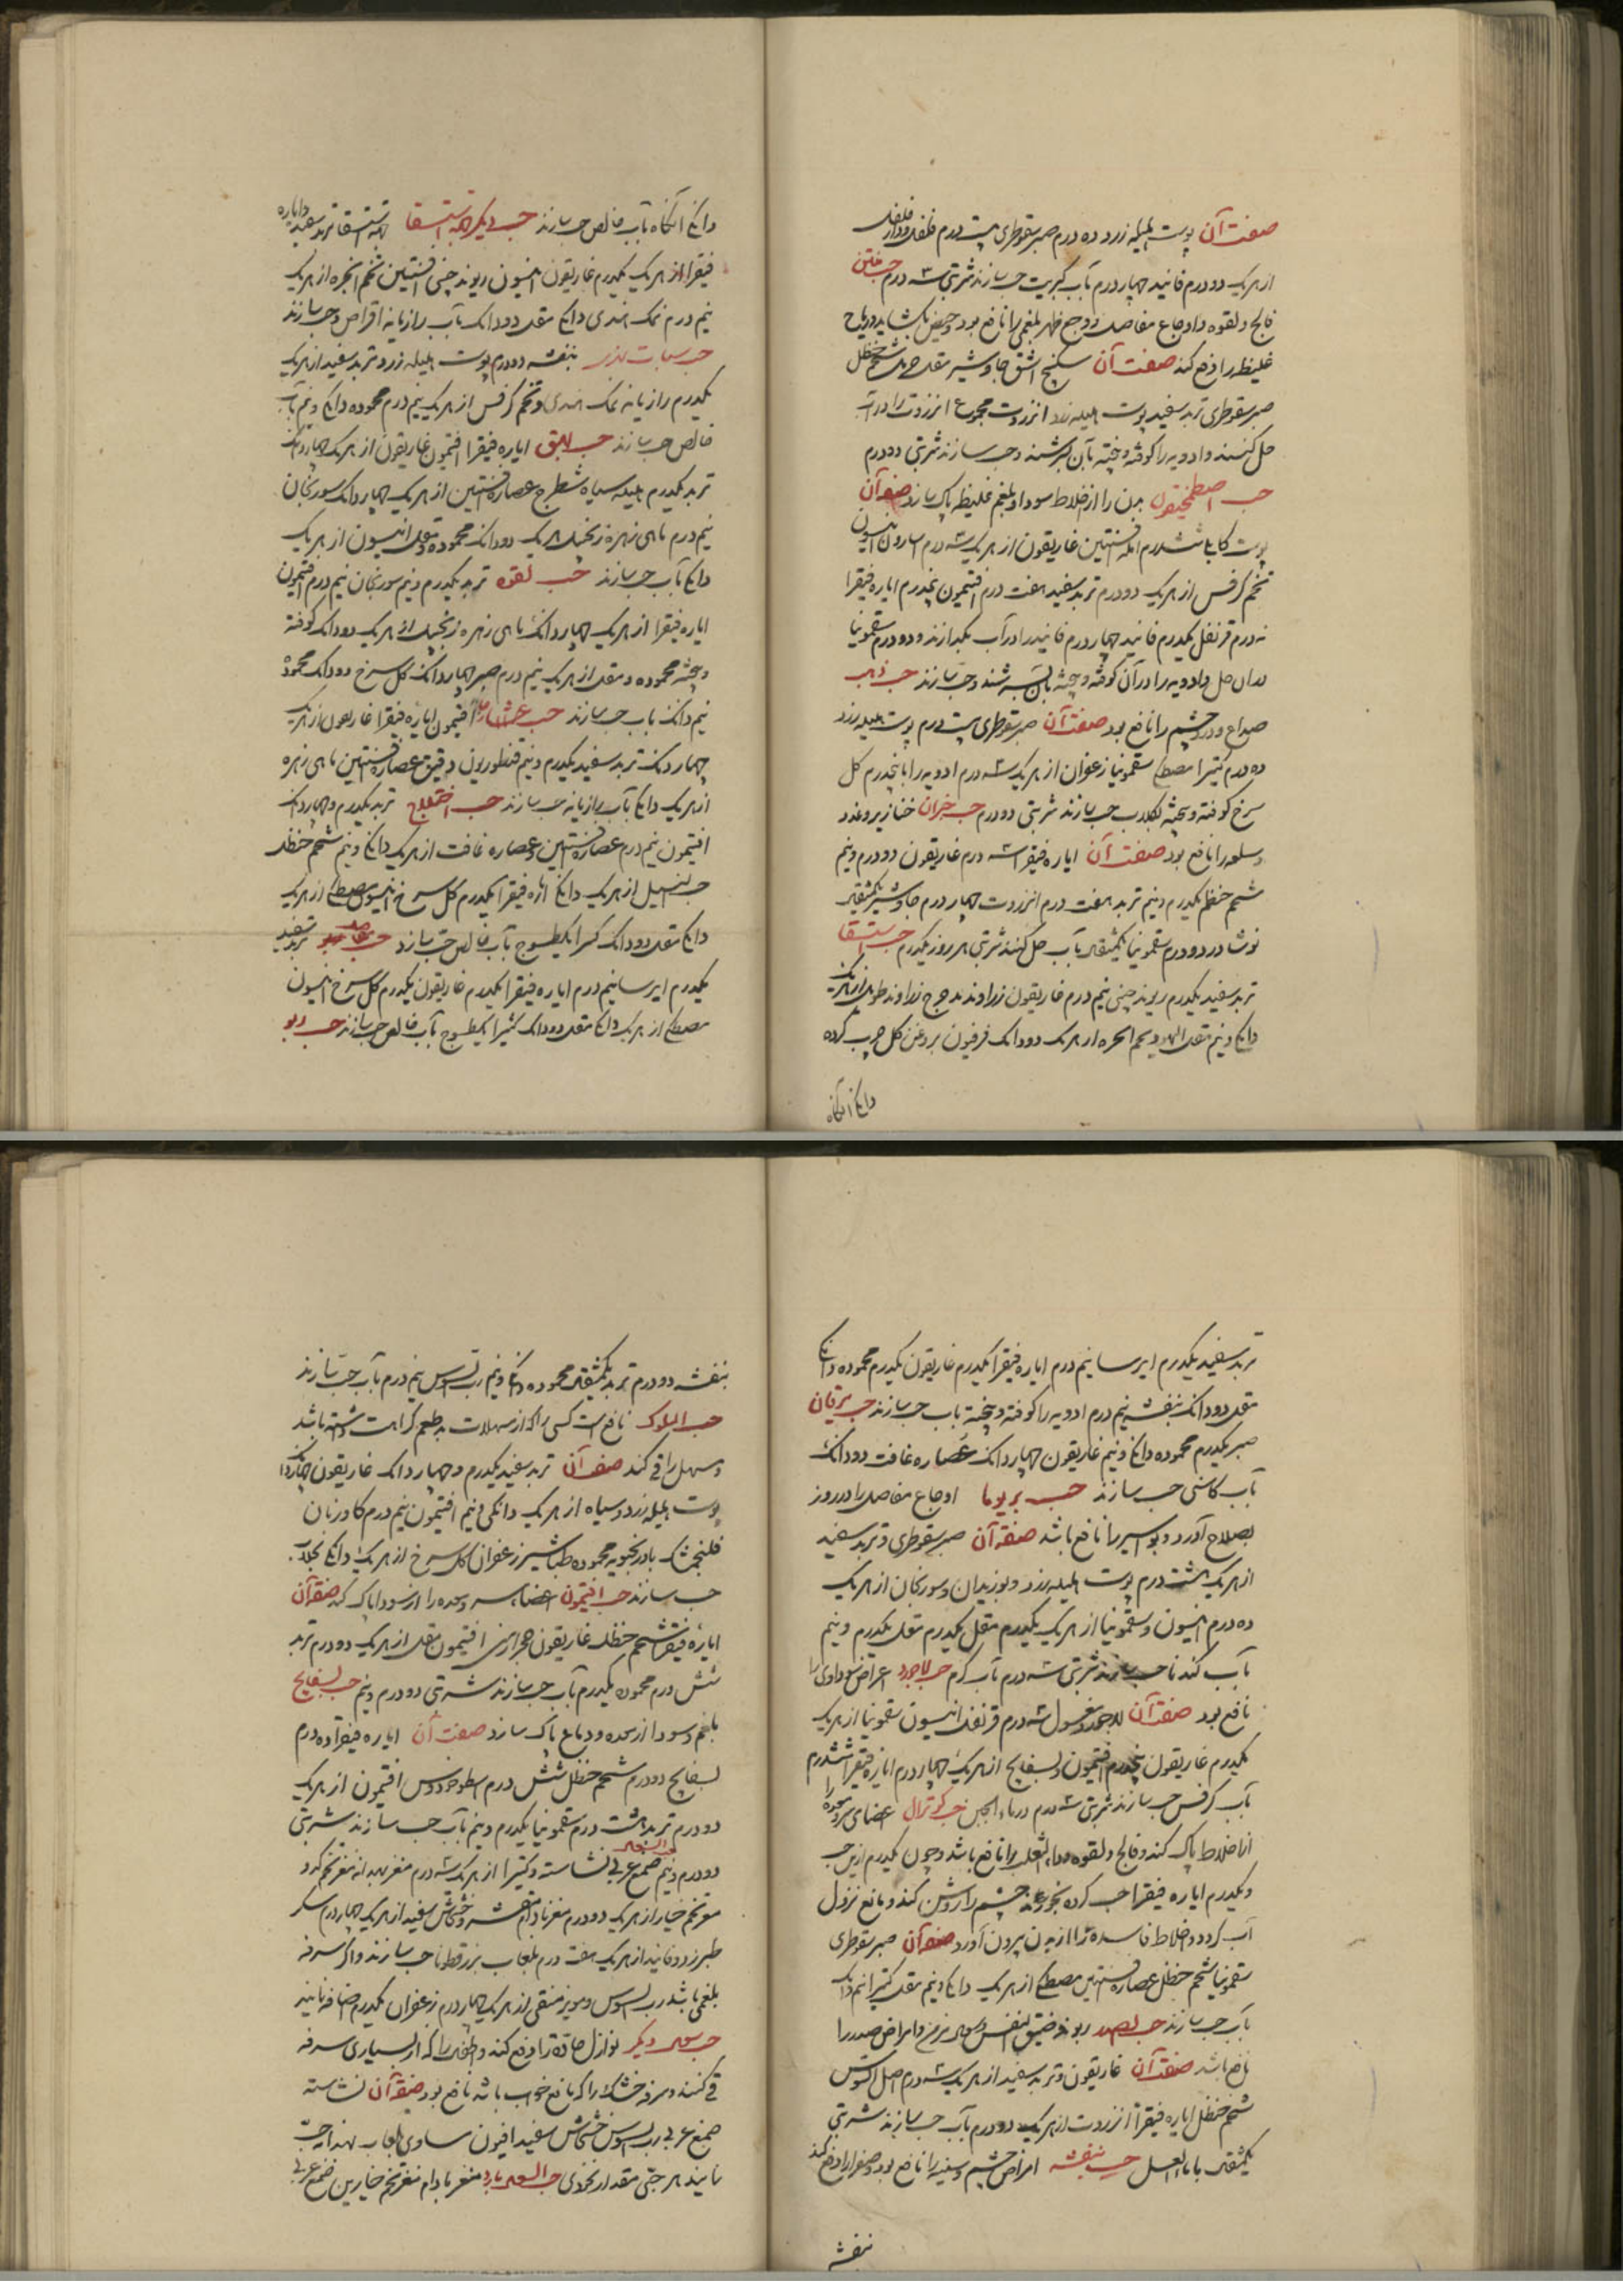 صفت آن پوست هلیله زرد ده درم صبر سقوطری بیست درم فلفل دار فلفل
از هر یک دو درم فانید چهار درم بآب کبریت حب سازند شربتی سه درم حب منتن
فالج و لقوه و اوجاع مفاصل و وجع ظهر بلغمی را نافع بود و حیض بگشاید و ریاح
غلیظ را دفع کند صفت آن سکبینج اشق جاوشیر مقل شحم حنظل
صبر سقوطری تربد سفید پوست هلیله زرد انزروت مجموع انزروت را در آب
حل کنند و ادویه را کوفته و بیخته بآن بسرشند و حب سازند شربتی دو درم
حب اصطمخیقون بدن را از اخلاط سودا و بلغم غلیظ پاک سازد صفت آن
پوست کابلی شش درم افسنتین غاریقون از هر یک سه درم اسارون انیسون
تخم کرفس از هر یک دو درم تربد سفید هفت درم افتیمون پنجدرم ایاره فیقرا
نه درم قرنفل یکدرم فانید چهار درم فانید را در آب بگدازند و دو درم سقمونیا
در آن حل و ادویه را در آن کوفته و بیخته بآن بسرشند و حب سازند حب ذهب
صداع و درد چشم را نافع بود صفت آن صبر سقوطری بیست درم پوست هلیله زرد
ده درم کتیرا مصطکی سقمونیا زعفران از هر یک سه درم ادویه را با پنجدرم گل
سرخ کوفته و بیخته بگلاب حب سازند شربتی دو درم حب خیزران خنازیر و غدد
و سلعه را نافع بود صفت آن ایاره فیقرا سه درم غاریقون دو درم و نیم
شحم حنظل یکدرم و نیم تربد هفت درم انزروت چهار درم جاوشیر یکمثقال
نوشادر دو درم سقمونیا یکمثقال بآب حل کنند شربتی هر روز یکدرم حب استسقا
تربد سفید یکدرم ریوند چینی نیم درم غاریقون زراوند مدحرج زراوند طویل از هر یک
دانکی و نیم مقل و تخم انجره از هر یک دو دانک فرفیون بروغن گل چرب کرده
دانکی آنگاه
دانکی آنگاه بآب خالص حب سازند حب دیگر جهة استسقا جهة استسقا تربد سفید و ایاره
فیقرا از هر یک یکدرم غاریقون انیسون ریوند چینی افسنتین تخم انجره از هر یک
نیم درم نمک هندی دانکی مقل دو دانک بآب رازیانه اقراص و حب سازند
بنفشه دو درم پوست هلیله زرد و تربد سفید از هر یک
یکدرم رازیانه نمک هندی و تخم کرفس از هر یک نیم درم محموده دانکی و نیم بآب
خالص حب سازند ایاره فیقرا افتیمون غاریقون از هر یک چهار دانک
تربد یکدرم هلیله سیاه شطرج عصاره افسنتین از هر یک چهار دانک سورنجان
نیم درم ماهی زهره زنجبیل از هر یک دو دانک محموده و مقل انیسون از هر یک
دانکی بآب حب سازند حب لقوه تربد یکدرم و نیم سورنجان نیم درم افتیمون
ایاره فیقرا از هر یک چهار دانک ماهی زهره زنجبیل از هر یک دو دانک کوفته
و بیخته محموده و مقل از هر یک نیم درم صبر چهار دانک گل سرخ دو دانک محموده
نیم دانک بآب حب سازند حب افتیمون ایاره فیقرا غاریقون از هر یک
چهار دانک تربد سفید یکدرم و نیم قنطوریون دقیق عصاره افسنتین ماهی زهره
از هر یک دانکی بآب رازیانه حب سازند حب اختلاج تربد یکدرم و چهار دانک
افتیمون نیم درم عصاره افسنتین و عصاره غافث از هر یک دانکی و نیم شحم حنظل
حب النیل از هر یک دانکی ایاره فیقرا یکدرم گل سرخ انیسون مصطکی از هر یک
دانکی مقل دو دانک کتیرا یک طسوج بآب خالص حب سازد تربد سفید
یکدرم ایرسا نیم درم ایاره فیقرا یکدرم غاریقون یکدرم گل سرخ انیسون
مصطکی از هر یک دانکی مقل دو دانک کتیرا یک طسوج بآب خالص حب سازند حب ربو
تربد سفید یکدرم ایرسا نیم درم ایاره فیقرا یکدرم غاریقون یکدرم محموده دانکی
مقل دو دانک بنفشه نیم درم ادویه را کوفته و بیخته بآب حب سازند حب یرقان
صبر یکدرم محموده دانکی و نیم غاریقون چهار دانک عصاره غافث دو دانک
بآب کاسنی حب سازند حب بربوما اوجاع مفاصل را در روز
بصلاح آورد و بواسیر را نافع باشد صفت آن صبر سقوطری و تربد سفید
از هر یک هشت درم پوست هلیله زرد و بوزیدان و سورنجان از هر یک
ده درم انیسون و سقمونیا از هر یک یکدرم مقل یکدرم مقل یکدرم و نیم
بآب گندنا حب سازند شربتی سه درم بآب گرم حب لاجورد امراض سوداوی را
نافع بود صفت آن لاجورد مغسول سه درم قرنفل انیسون سقمونیا از هر یک
یکدرم غاریقون پنجدرم افتیمون و بسفایج از هر یک چهار درم ایاره فیقرا ششدرم
بآب کرفس حب سازند شربتی سه درم در ماء الجبن اعضای سر و معده را
از اخلاط پاک کند و فالج و لقوه و داء الثعلب را نافع باشد و چون یکدرم ازین حب
و یکدرم ایاره فیقرا حب کرده بخورند چشم را روشن کند و مانع نزول
آب گردد و اخلاط فاسده را از بدن بیرون آورد صفت آن صبر سقوطری
سقمونیا شحم حنظل عصاره افسنتین مصطکی از هر یک دانکی و نیم مقل کتیرا نیم دانک
بآب حب سازند ربو و ضیق النفس و سعال مزمن و امراض صدر را
نافع باشد صفت آن غاریقون و تربد سفید از هر یک سه درم اصل السوس
شحم حنظل ایاره فیقرا انزروت از هر یک دو درم بآب حب سازند شربتی
یکمثقال با ماء العسل حب بنفشه امراض چشم و سینه را نافع بود و صفرا را دفع کند
بنفشه
بنفشه دو درم تربد یکمثقال محموده دانکی و نیم رب السوس نیم درم بآب حب سازند
حب الملوک نافع است کسی را که از مسهلات بد طعم کراهت داشته باشد
و مسهل را قی کند صفت آن تربد سفید یکدرم و چهار دانک غاریقون چهار دانک
پوست هلیله زرد و سیاه از هر یک دانکی و نیم افتیمون نیم درم گاو زبان
فلنجمشک بادرنجبویه محموده طباشیر زعفران گل سرخ از هر یک دانکی بگلاب
حب سازند حب افتیمون اعضاء سر و معده را از سودا پاک کند صفت آن
ایاره فیقرا شحم حنظل غاریقون حجر ارمنی افتیمون مقل از هر یک دو درم تربد
شش درم محموده یکدرم بآب حب سازند شربتی دو درم و نیم حب بسفایج
بلغم و سودا از معده و دماغ پاک سازد صفت آن ایاره فیقرا ده درم
بسفایج دو درم شحم حنظل شش درم اسطوخودوس افتیمون از هر یک
دو درم تربد هشت درم سقمونیا یکدرم و نیم بآب حب سازند شربتی
دو درم و نیم حب السعال صمغ عربی نشاسته و کتیرا از هر یک سه درم مغز بهدانه مغز تخم کدو
مغز تخم خیار از هر یک دو درم مغز بادام مقشر و خشخاش سفید از هر یک چهار درم سکر
طبرزد و فانید از هر یک هفت درم بلعاب بزرقطونا حب سازند و اگر سرفه
بلغمی باشد رب السوس و مویز منقی از هر یک چهار درم زعفران یکدرم اضافه نمایند
حب سعال دیگر نوازل حاده را دفع کند و اطفال را که از بسیاری سرفه
قی کنند و سرفه خشک را که مانع خواب باشد نافع بود صفت آن نشاسته
صمغ عربی رب السوس خشخاش سفید افیون مساوی بلعاب بهدانه حب
نمایند هر حبی مقدار نخودی حب السعال بارد مغز بادام مغز تخم خیارین صمغ عربی